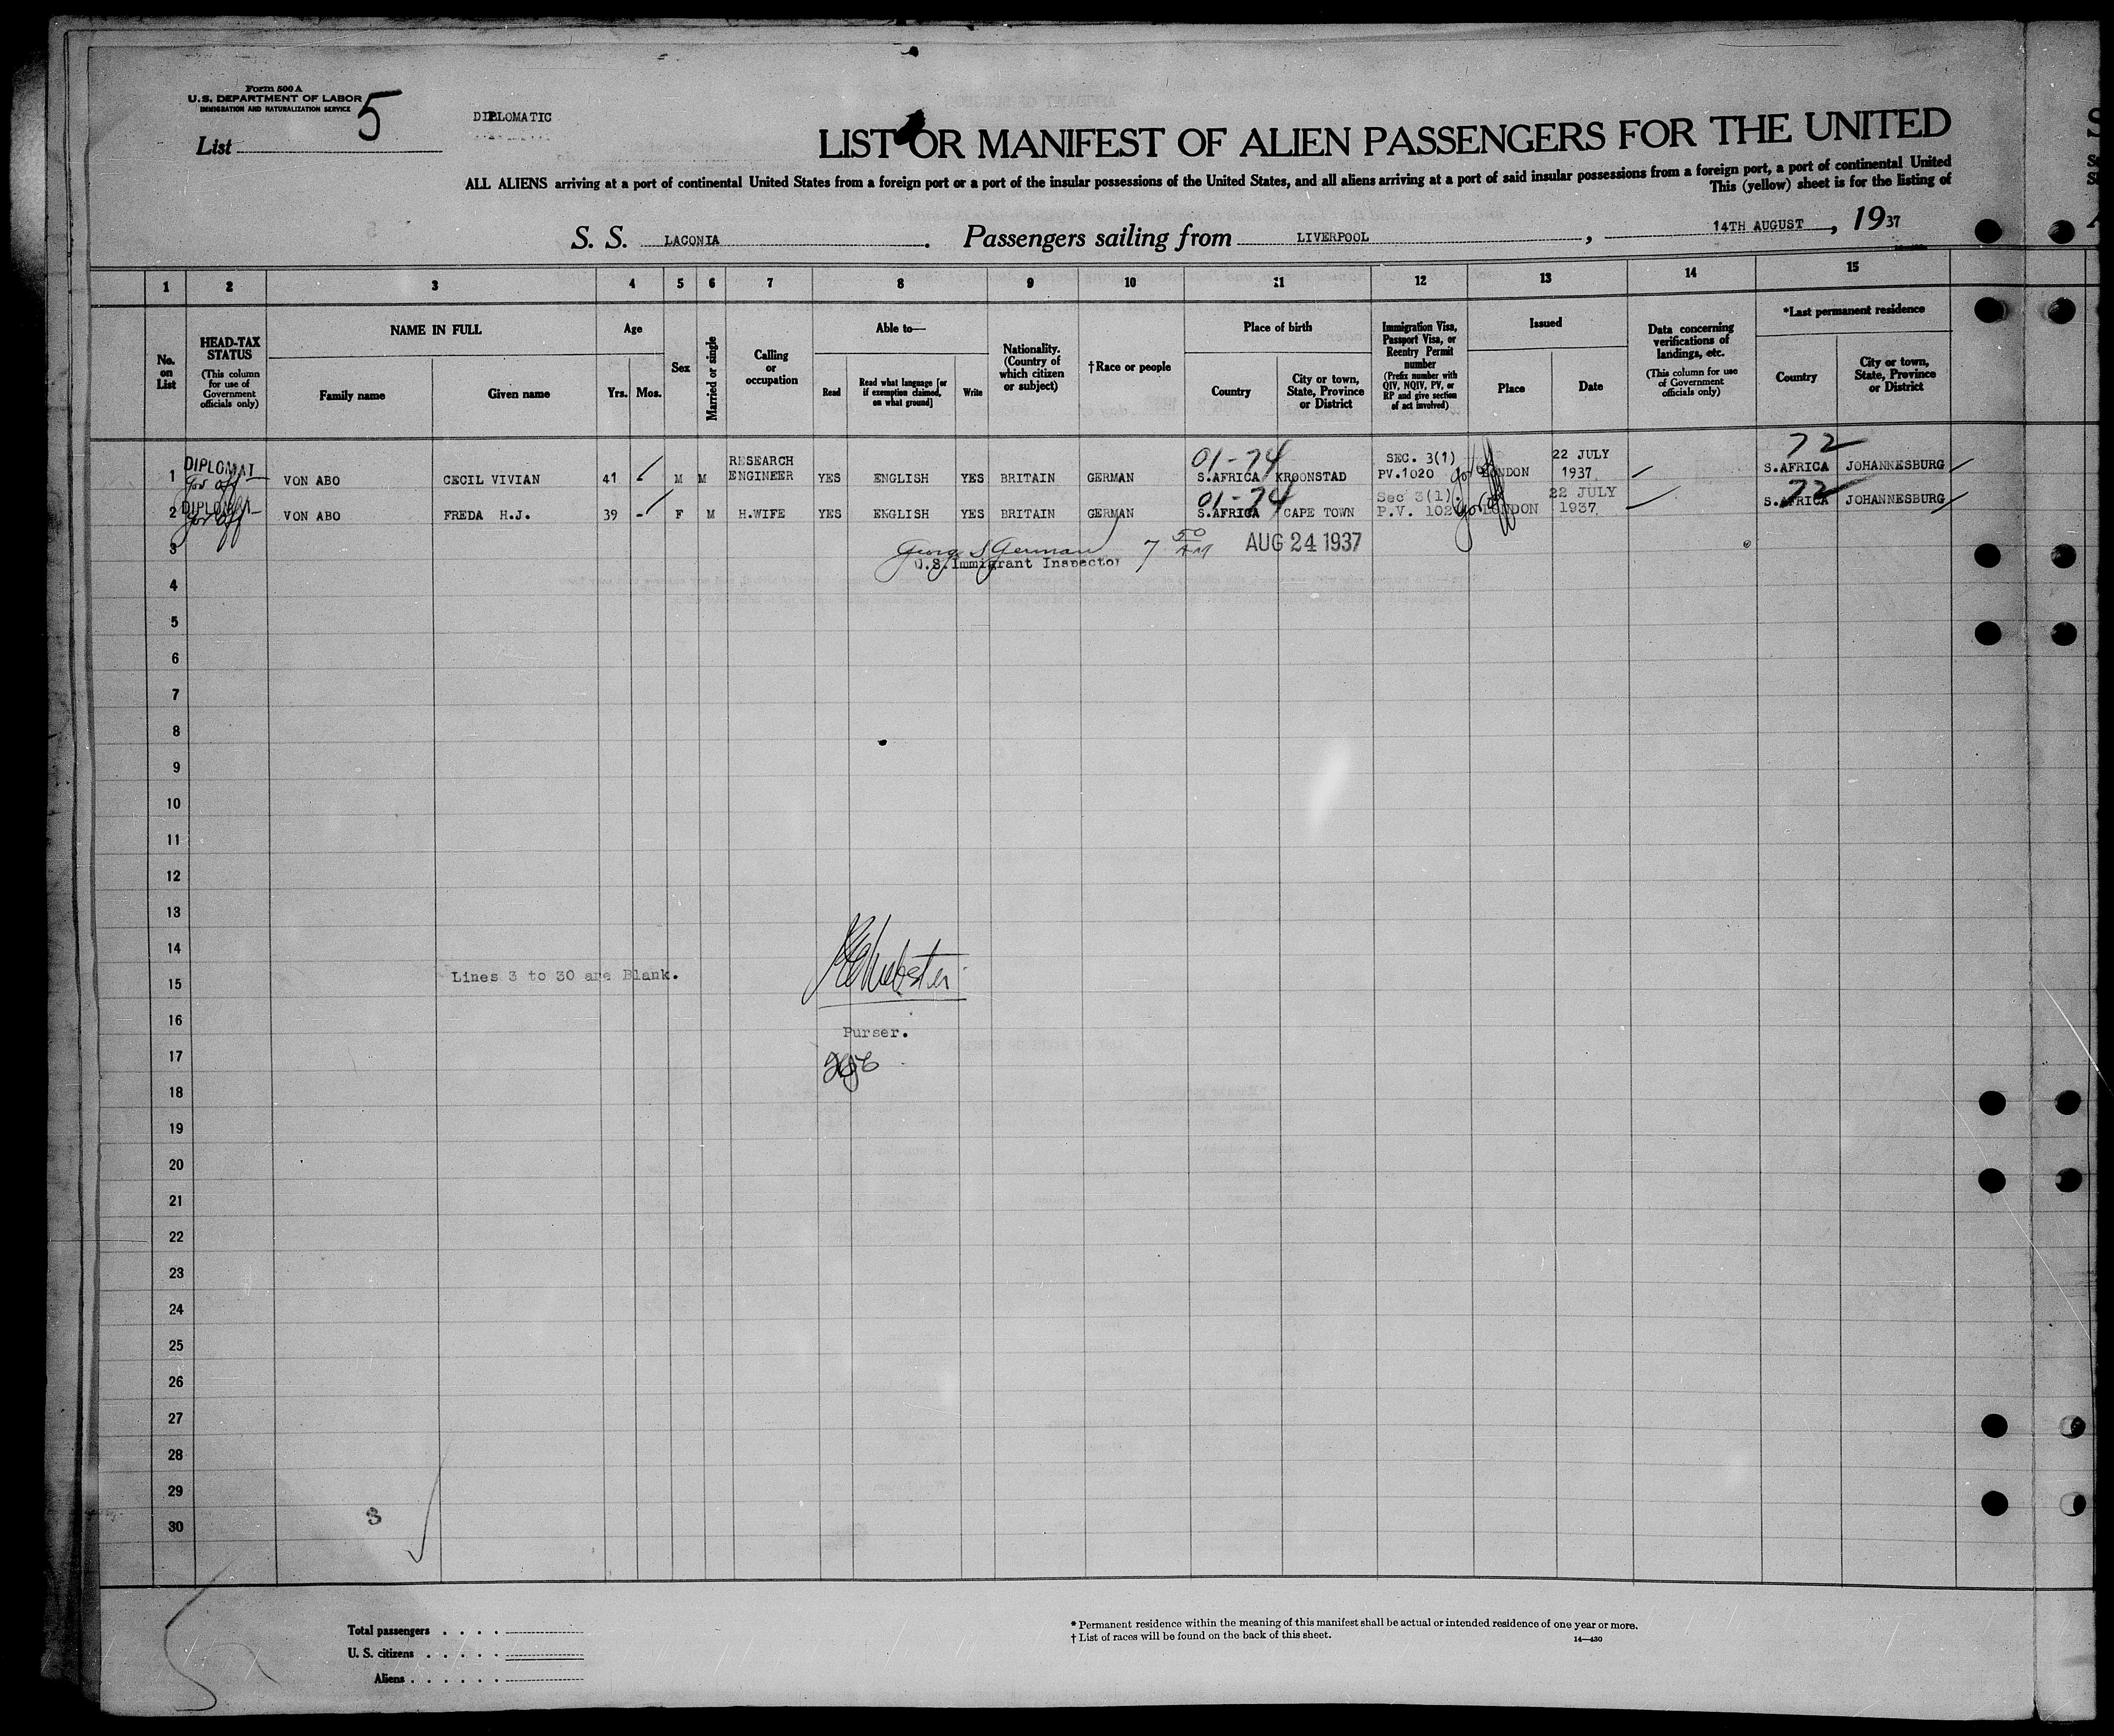 Form 500 A
U.S. DEPARTMENT OF LABOR
IMMIGRATION AND NATURALIZATION SERVICE
List 5
DIPLOMATIC
LIST OR MANIFEST OF ALIEN PASSENGERS FOR THE UNITED
ALL ALIENS arriving at a port of continental United States from a foreign port or a port of the insular possessions of the United States, and all aliens arriving at a port of said insular possessions from a foreign port, a port of continental United
This (yellow) sheet is for the listing of
S. S. LACONIA . Passengers sailing from LIVERPOOL , 14TH AUGUST , 1937
1 2 3 4 5 6 7 8 9 10 11 12 13 14 15
No. on List
HEAD-TAX STATUS
(This column for use of Government officials only)
NAME IN FULL
Family name
Given name
Age
Yrs. Mos.
Sex
Married or single
Calling or occupation
Able to—
Read
Read what language [or if exemption claimed, on what ground]
Write
Nationality. (Country of which citizen or subject)
†Race or people
Place of birth
Country
City or town, State, Province or District
Immigration Visa, Passport Visa, or Reentry Permit number
(Prefix number with QIV, NQIV, PV, or RP and give section of act involved)
Issued
Place
Date
Data concerning verifications of landings, etc.
(This column for use of Government officials only)
*Last permanent residence
Country
City or town, State, Province or District
1 DIPLOMAT VON ABO CECIL VIVIAN 41 M M RESEARCH ENGINEER YES ENGLISH YES BRITAIN GERMAN 01-74 S.AFRICA KROONSTAD SEC. 3(1) PV.1020 LONDON 22 JULY 1937 72 S.AFRICA JOHANNESBURG
2 VON ABO FREDA H.J. 39 - F M H.WIFE YES ENGLISH YES BRITAIN GERMAN 01-74 S.AFRICA CAPE TOWN Sec 3(1). P.V. LONDON 22 JULY 1937. 72 S.AFRICA JOHANNESBURG
3 George S German 7 50 AM AUG 24 1937
U.S. Immigrant Inspector
4
5
6
7
8
9
10
11
12
13
14
15 Lines 3 to 30 are Blank. Webster
16 Purser.
17
18
19
20
21
22
23
24
25
26
27
28
29
30 3
Total passengers . . . .
U. S. citizens . . . . .
Aliens . . . . . .
* Permanent residence within the meaning of this manifest shall be actual or intended residence of one year or more.
† List of races will be found on the back of this sheet.
14—430